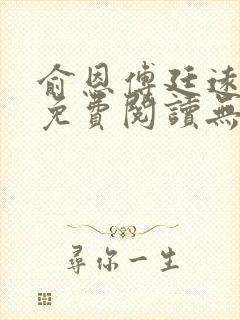 俞恩傅廷遠
免費閱讀無
尋你一生